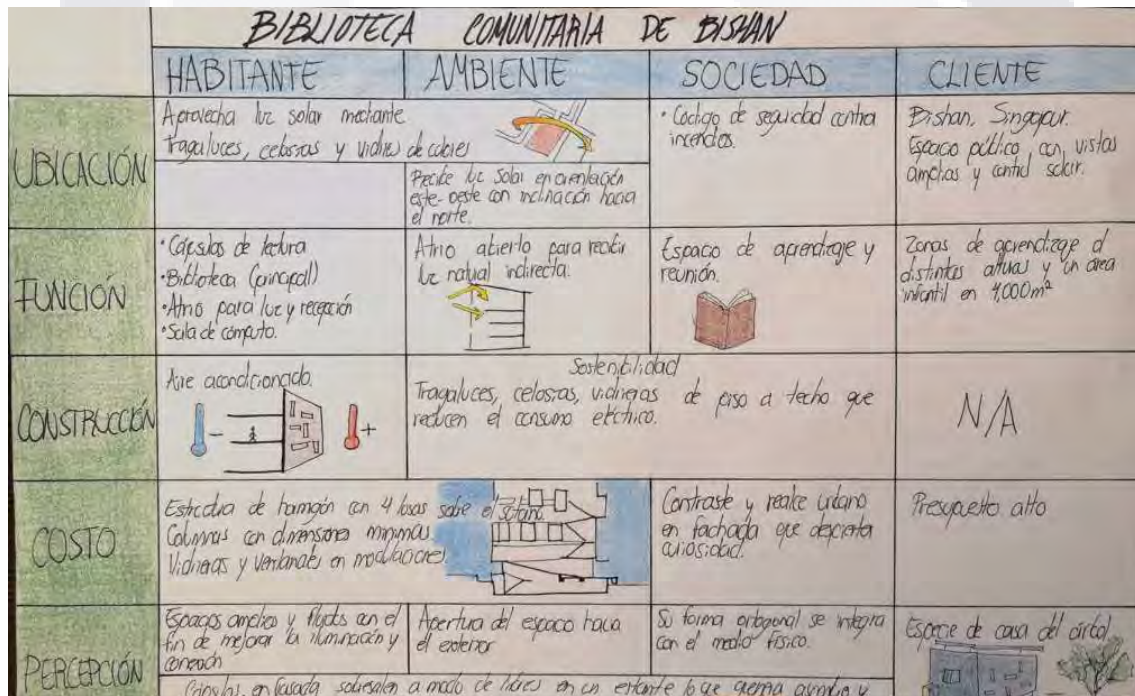 BIBLIOTECA COMUNITARIA DE BISHAN
HABITANTE
AMBIENTE
SOCIEDAD
CLIENTE
UBICACIÓN
Aprovecha luz solar mediante
tragaluces, celosías y vidrios de colores
Recibe luz solar en orientación
este-oeste con inclinación hacia
el norte.
• Código de seguridad contra
incendios.
Bishan, Singapur.
Espacio público con vistas
amplias y control solar.
FUNCIÓN
• Cápsulas de lectura
• Biblioteca (principal)
• Atrio para luz y recepción
• Sala de cómputo.
Atrio abierto para recibir
luz natural indirecta.
Espacio de aprendizaje y
reunión.
Zonas de aprendizaje a
distintas alturas y un área
infantil en 4,000m²
CONSTRUCCIÓN
Aire acondicionado.
-
+
Sostenibilidad
Tragaluces, celosías, vidrieras de piso a techo que
reducen el consumo eléctrico.
N/A
COSTO
Estructura de hormigón con 4 losas sobre el sótano.
Columnas con dimensiones mínimas.
Vidrieras y ventanales en modulaciones.
Contraste y realce urbano
en fachada que despierta
curiosidad.
Presupuesto alto
PERCEPCIÓN
Espacios amplios y fluidos con el
fin de mejorar la iluminación y
conexión
Apertura del espacio hacia
el exterior
Su forma ortogonal se integra
con el medio físico.
Especie de casa del árbol
Cápsulas en fachada sobresalen a modo de libros en un estante lo que genera